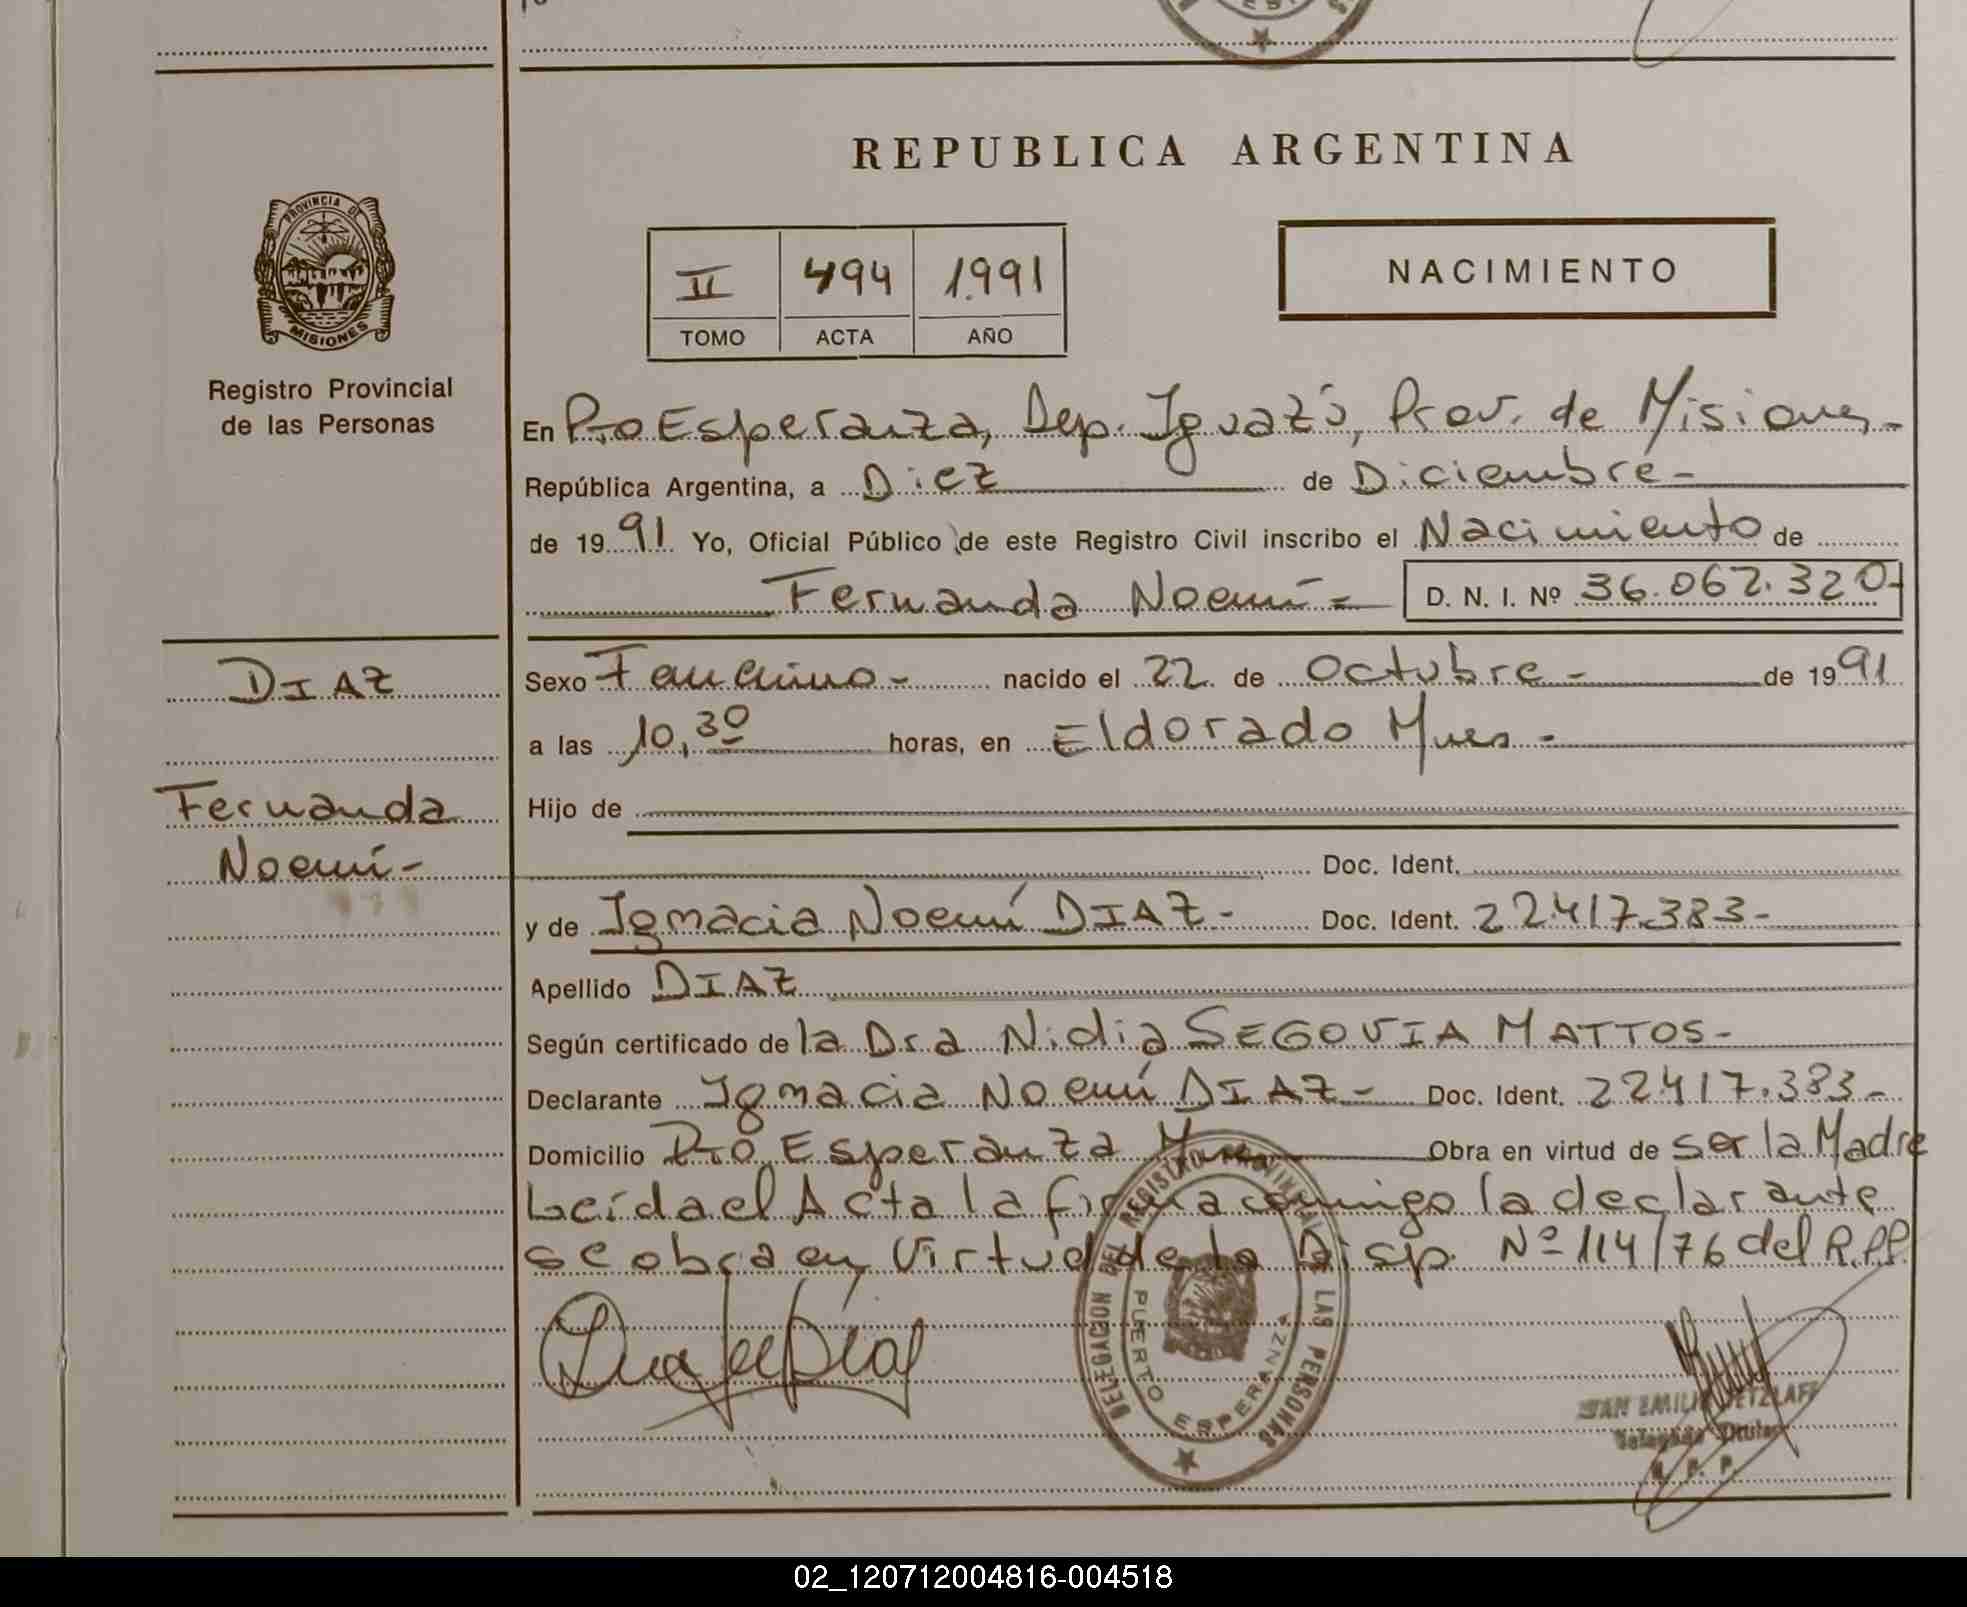 REPUBLICA ARGENTINA
PROVINCIA DE
MISIONES
Registro Provincial
de las Personas
II 494 1.991
TOMO ACTA AÑO
NACIMIENTO
En Pto Esperanza, Dep. Iguazú, Prov. de Misiones.-
República Argentina, a Diez de Diciembre -
de 1991 Yo, Oficial Público de este Registro Civil inscribo el Nacimiento de
Fernanda Noemí = D. N. I. Nº 36.062.320-
DIAZ
Fernanda
Noemí -
Sexo Femenino - nacido el 22 de Octubre - de 1991
a las 10,30 horas, en Eldorado Mnes -
Hijo de
Doc. Ident.
y de Ignacia Noemí DIAZ - Doc. Ident. 22417.383-
Apellido DIAZ
Según certificado de la Dra Nidia SEGOVIA MATTOS -
Declarante Ignacia Noemí DIAZ - Doc. Ident. 22417.383-
Domicilio Pto Esperanza Obra en virtud de ser la Madre
Leída el Acta la firma conmigo la declarante
se obra en Virtud de la Disp. Nº 114/76 del R.P.P.
DELEGACION DEL REGISTRO PROVINCIAL DE LAS PERSONAS
PUERTO ESPERANZA
Delegado Titular
R. P. P.
02_120712004816-004518